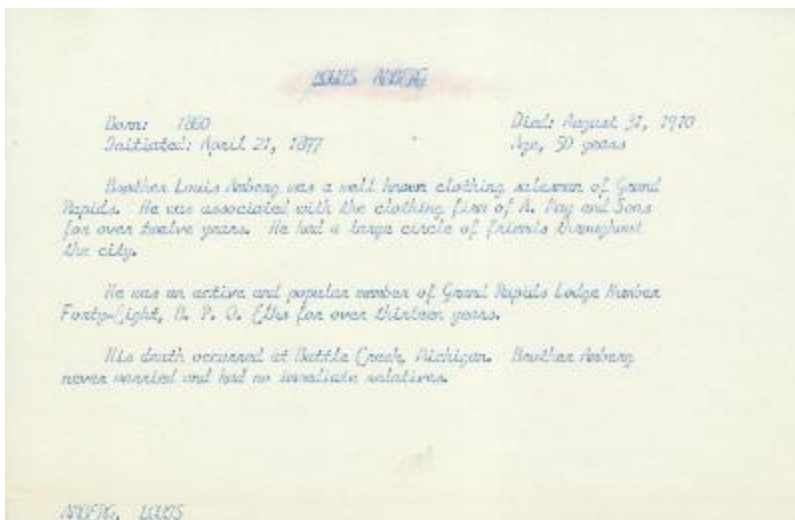 LOUIS AMBERG
Born: 1860 Died: August 31, 1910
Initiated: April 21, 1897 Age, 50 years
Brother Louis Amberg was a well known clothing salesman of Grand
Rapids. He was associated with the clothing firm of A. May and Sons
for over twelve years. He had a large circle of friends throughout
the city.
He was an active and popular member of Grand Rapids Lodge Number
Forty-Eight, B. P. O. Elks for over thirteen years.
His death occurred at Battle Creek, Michigan. Brother Amberg
never married and had no immediate relatives.
AMBERG, LOUIS